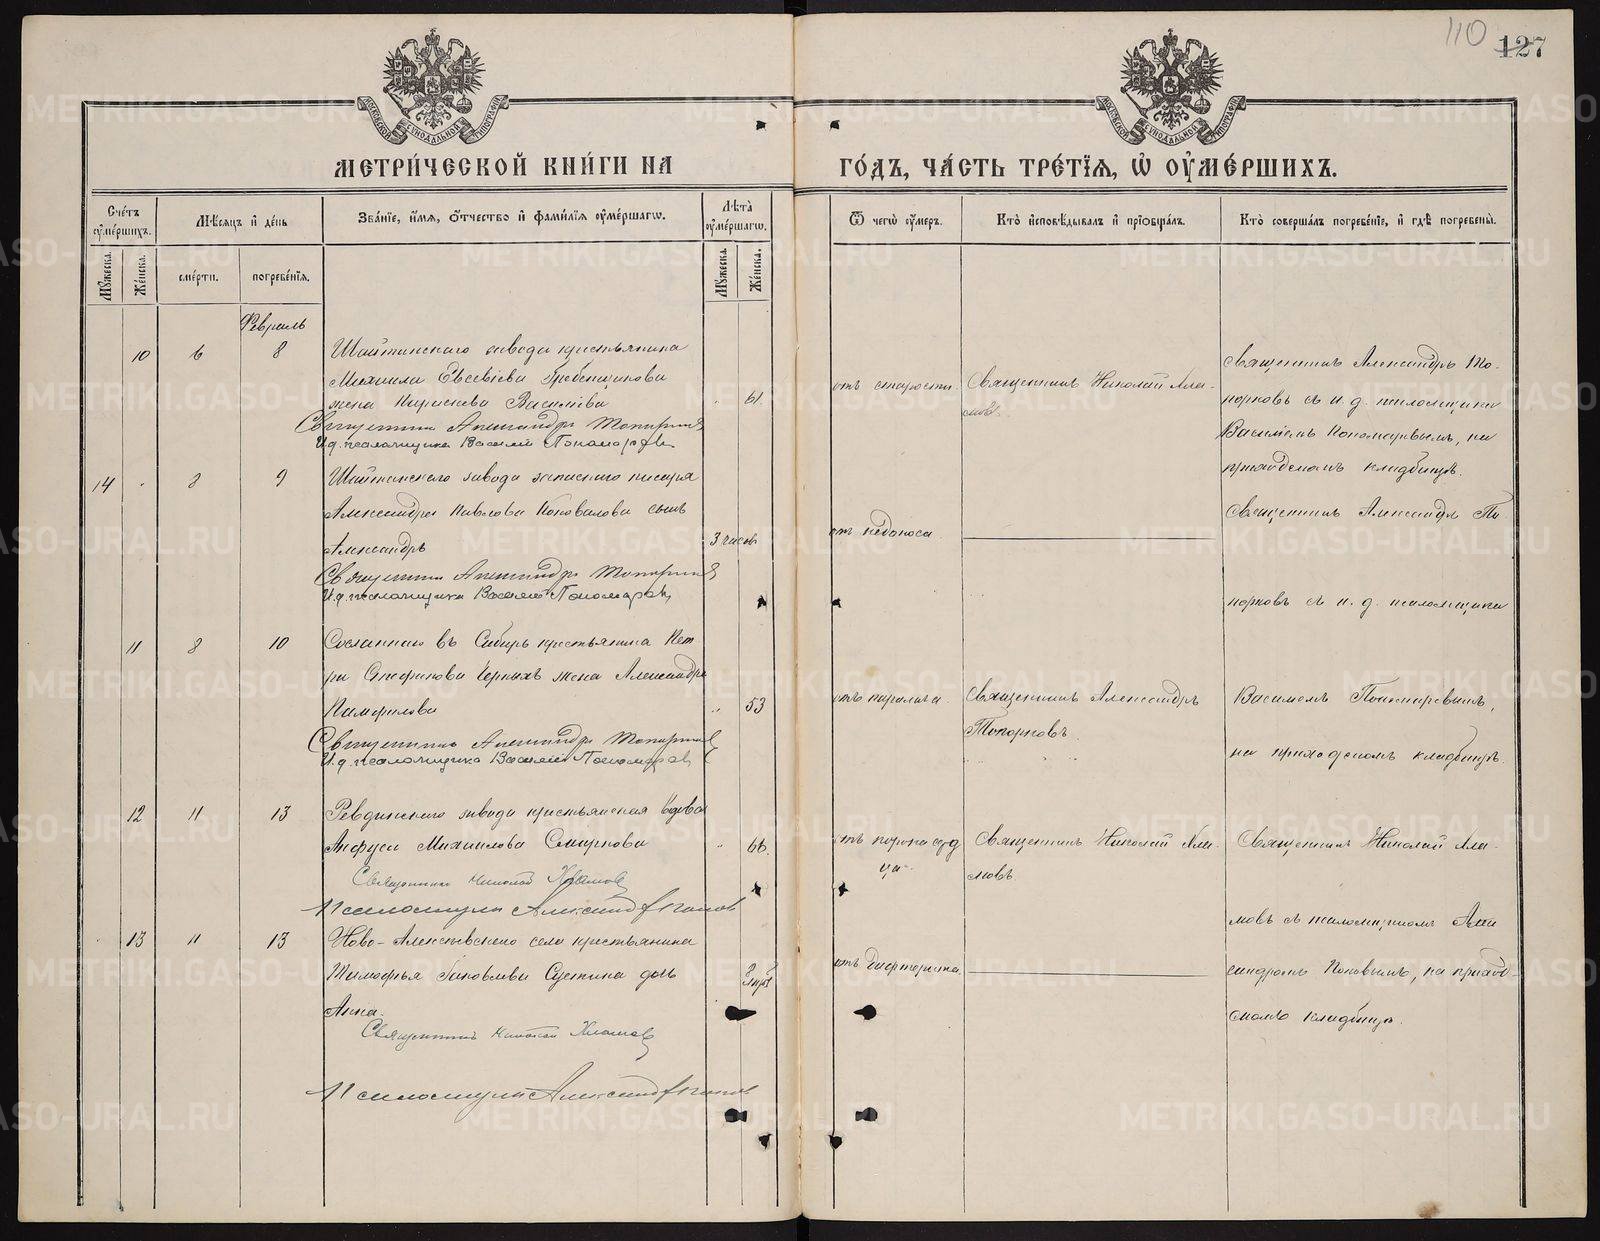 110
127
МОСКОВСКОЙ СѴНОДАЛЬНОЙ ТИПОГРАФІИ
МОСКОВСКОЙ СѴНОДАЛЬНОЙ ТИПОГРАФІИ
МЕТРИ́ЧЕСКОЙ КНИ́ГИ НА
ГО́ДЪ, ЧА́СТЬ ТРЕ́ТІЯ, Ѡ ОУ҆МЕ́РШИХЪ.
Сче́тъ оу҆ме́ршихъ.
Мѣ́сяцъ и҆ де́нь
Зва́ніе, и҆́мя, ѻ҆́тчество и҆ фами́лія оу҆ме́ршагѡ.
Лѣ́та оу҆ме́ршагѡ.
Мꙋ́жеска.
Же́нска.
сме́рти.
погребе́нія.
Мꙋ́жеска.
Же́нска.
Ѿ чегѡ̀ оу҆́меръ.
Кто̀ и҆сповѣ́дывалъ и҆ прїѡбща́лъ.
Кто̀ соверша́лъ погребе́ніе, и҆ гдѣ̀ погребены̀.
Февраль
10 6 8 Шайтанскаго завода крестьянина
Михаила Евсевіева Гребенщикова
жена Параскева Василіева 61
Священникъ Александръ Топорковъ
И.д. псаломщика Василій Пономаревъ
отъ старости.
Священникъ Николай Хла-
мовъ.
Священникъ Александръ То-
порковъ съ и. д. псаломщика
Василіемъ Пономаревымъ, на
приходскомъ кладбищѣ.
14 8 9 Шайтанскаго завода запаснаго писаря
Александра Павлова Коновалова сынъ
Александръ 3 часов
Священникъ Александръ Топорковъ
И.д. псаломщика Василій Пономаревъ
отъ недоноса.
Священникъ Александръ То-
порковъ съ и. д. псаломщика
11 8 10 Сосланнаго въ Сибирь крестьянина Пет-
ра Черныхъ жена Александра
Памфилова 53
Священникъ Александръ Топорковъ
И.д. псаломщика Василій Пономаревъ
отъ паралича.
Священникъ Александръ
Топорковъ.
Василіемъ Пономаревымъ,
на приходскомъ кладбищѣ.
12 11 13 Ревдинскаго завода крестьянская вдова
Анфуса Михаилова Смирнова 66.
Священникъ Николай Хламовъ
Псаломщикъ Александръ Поповъ
отъ порока серд
ца.
Священникъ Николай Хла-
мовъ.
Священникъ Николай Хла-
мовъ съ псаломщикомъ Але
ксандромъ Поповымъ, на приход-
скомъ кладбищѣ.
13 11 13 Ново-Алексѣевскаго села крестьянина
Тимофея Іаковлева Сустина дочь
Анна.
Священникъ Николай Хламовъ
Псаломщикъ Александръ Поповъ
отъ дифтерита.
METRIKI.GASO-URAL.RU